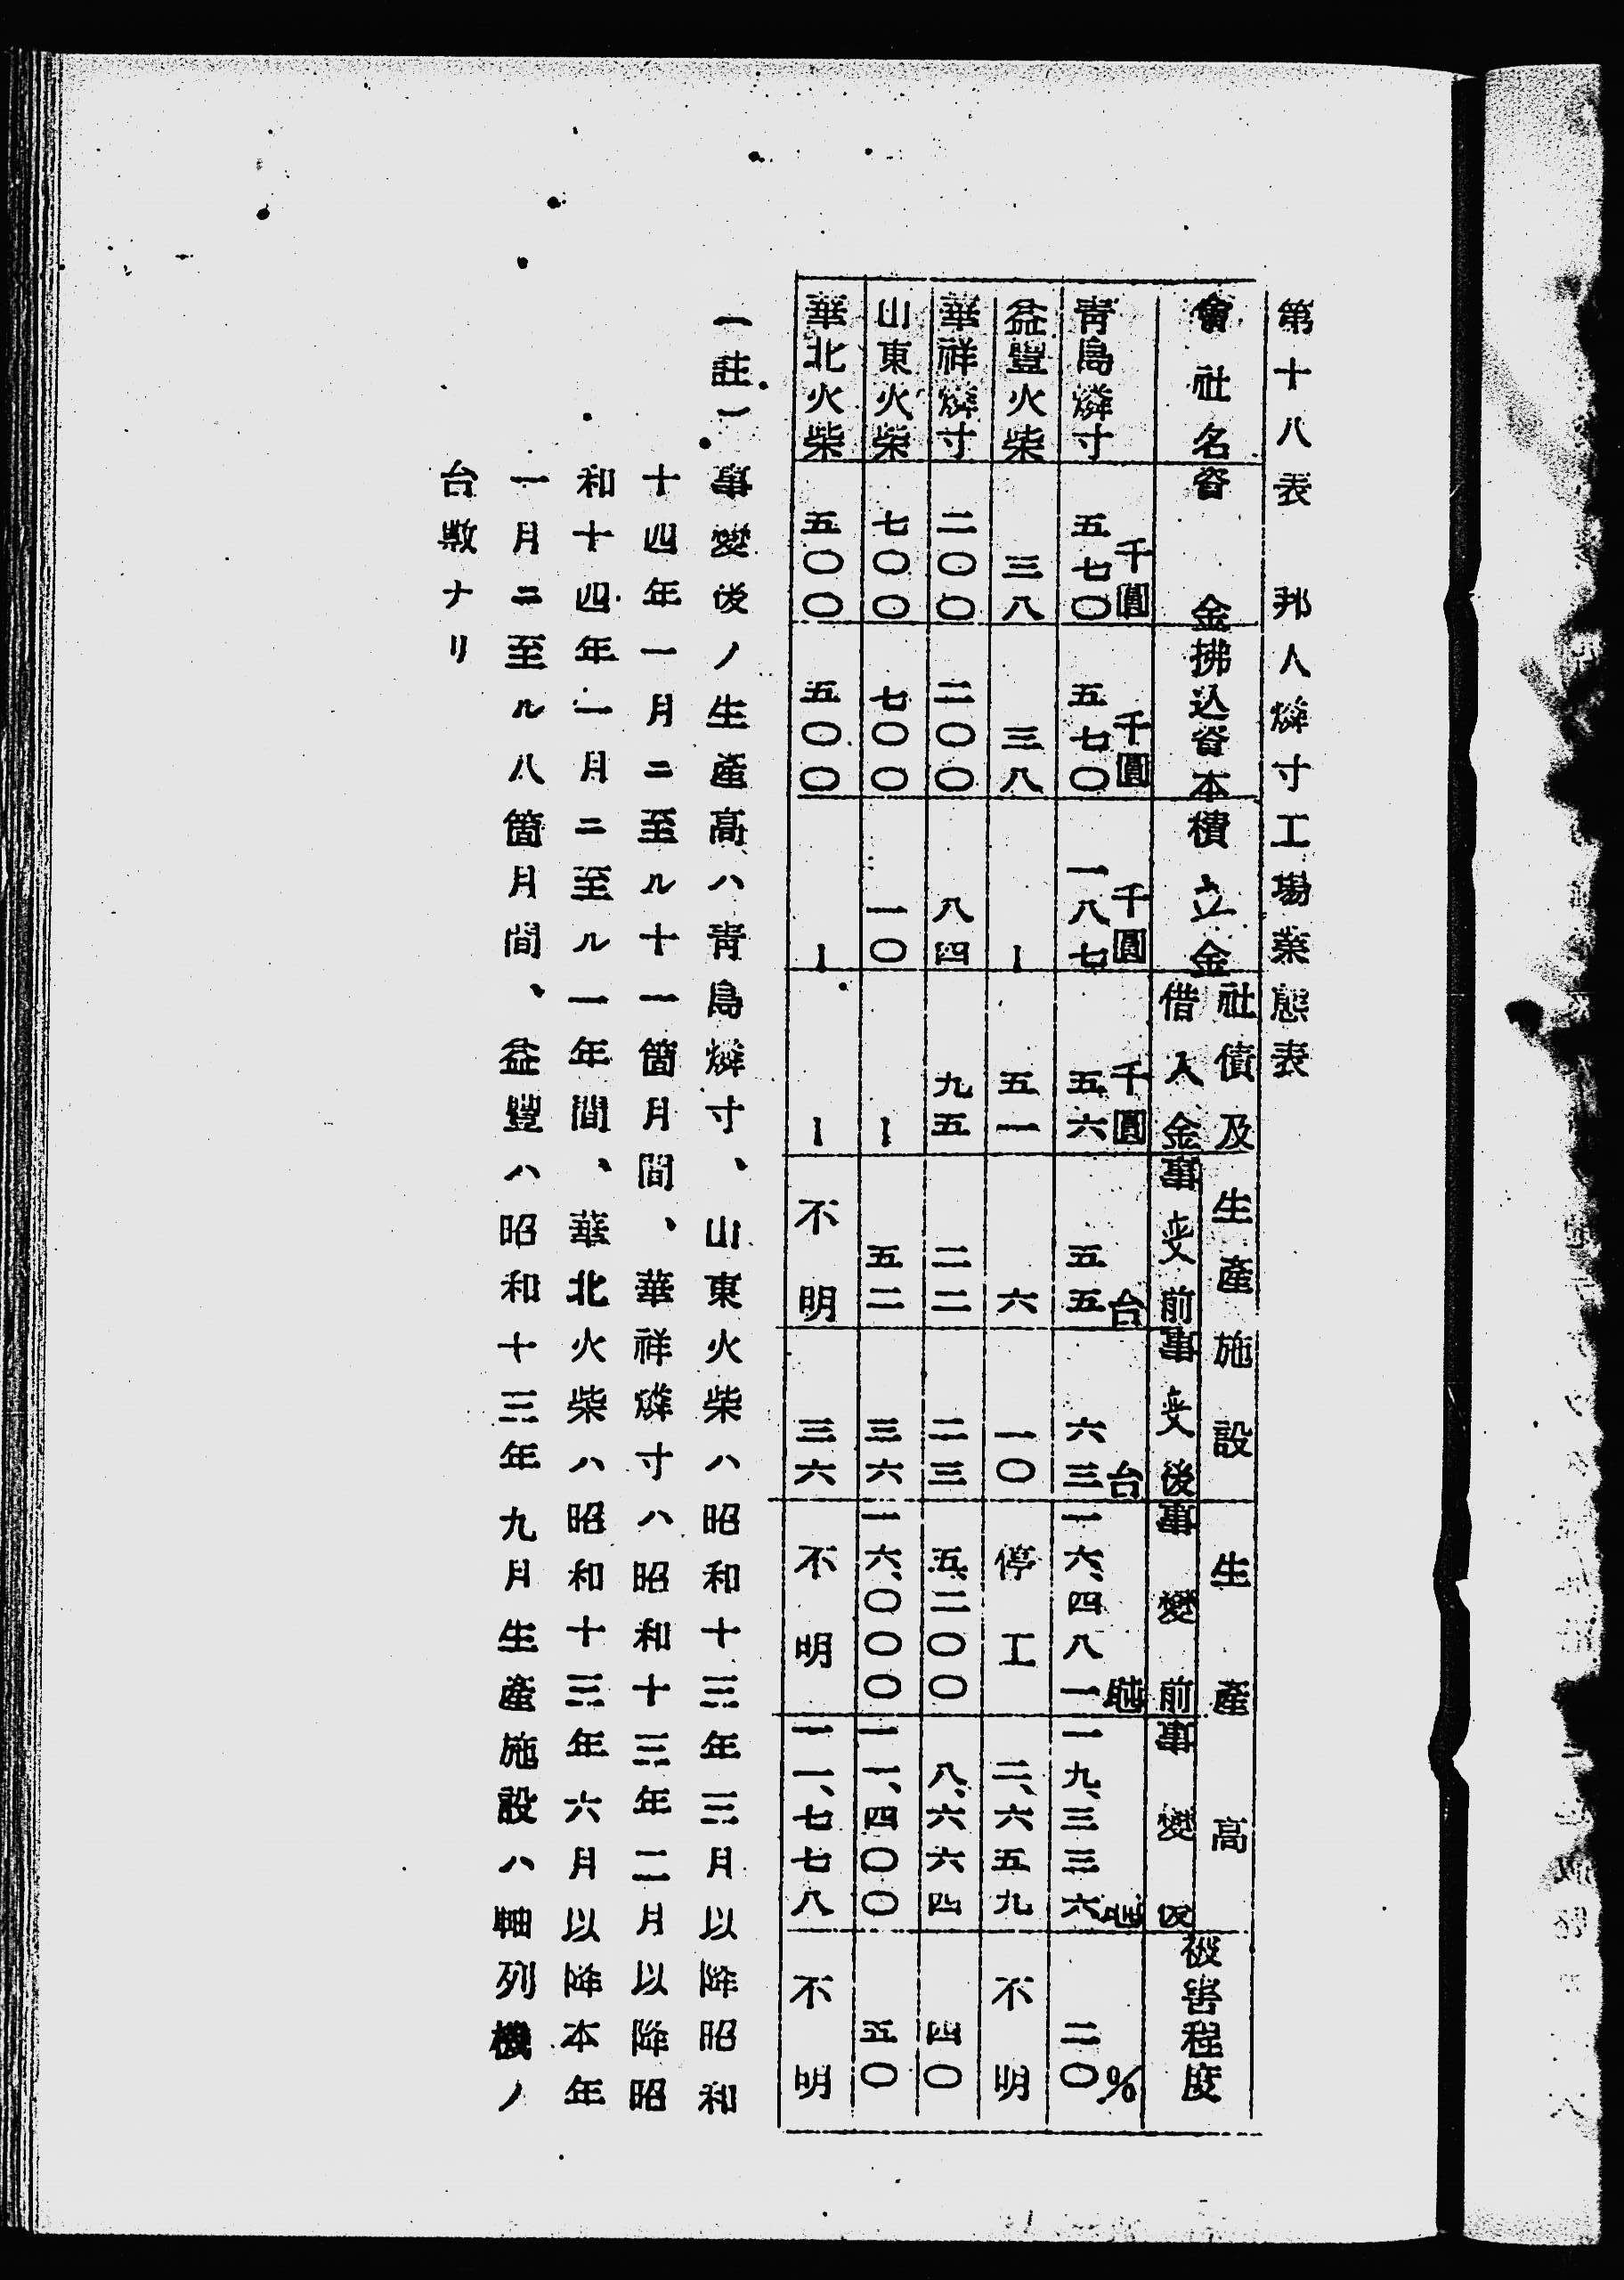 第十八表　邦人燐寸工場業態表
會社名　資金　拂込資本　積立金　社債及借入金　生産施設　事変前　事変後　生産高　事變前　事變後　被害程度
千圓　千圓　千圓　千圓　台　台　％
青島燐寸　五七〇　五七〇　一八七　五六　五五　六三　一六、四八一　一九、三三六　二〇
益豐火柴　三八　三八　ー　五一　六　一〇　停工　二、六五九　不明
華祥燐寸　二〇〇　二〇〇　八四　九五　二二　二三　五、二〇〇　八、六六四　四〇
山東火柴　七〇〇　七〇〇　一〇　ー　五二　三六　一六、〇〇〇　一一、四〇〇　五〇
華北火柴　五〇〇　五〇〇　ー　ー　不明　三六　不明　一一、七七八　不明
一註一　事變後ノ生產高ハ青島燐寸、山東火柴ハ昭和十三年三月以降昭和
十四年一月ニ至ル十一箇月間、華祥燐寸ハ昭和十三年二月以降昭
和十四年一月ニ至ル一年間、華北火柴ハ昭和十三年六月以降本年
一月ニ至ル八箇月間、益豐ハ昭和十三年九月生產施設ハ軸列機ノ
台數ナリ